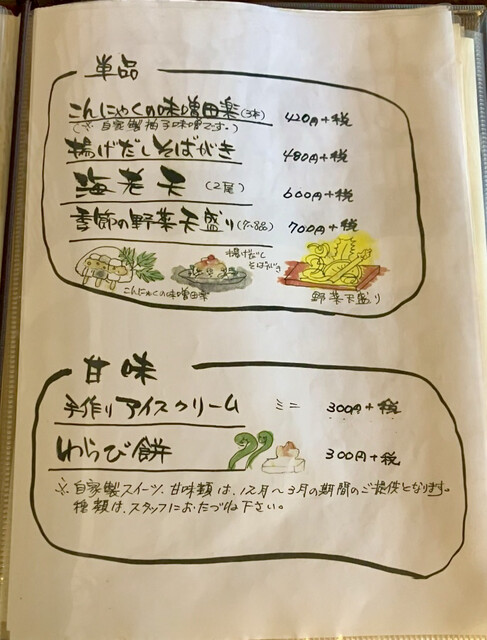 単品
こんにゃくの味噌田楽(3本) 420円+税
(※自家製柚子味噌です。)
揚げだしそばがき 480円+税
海老天 (2尾) 600円+税
季節の野菜天盛り(7~8品) 700円+税
揚げだし
そばがき
こんにゃくの味噌田楽
野菜天盛り
甘味
手作りアイスクリーム ミニ 300円+税
わらび餅 300円+税
※自家製スイーツ、甘味類は、12月~3月の期間のご提供となります。
種類は、スタッフにおたづね下さい。